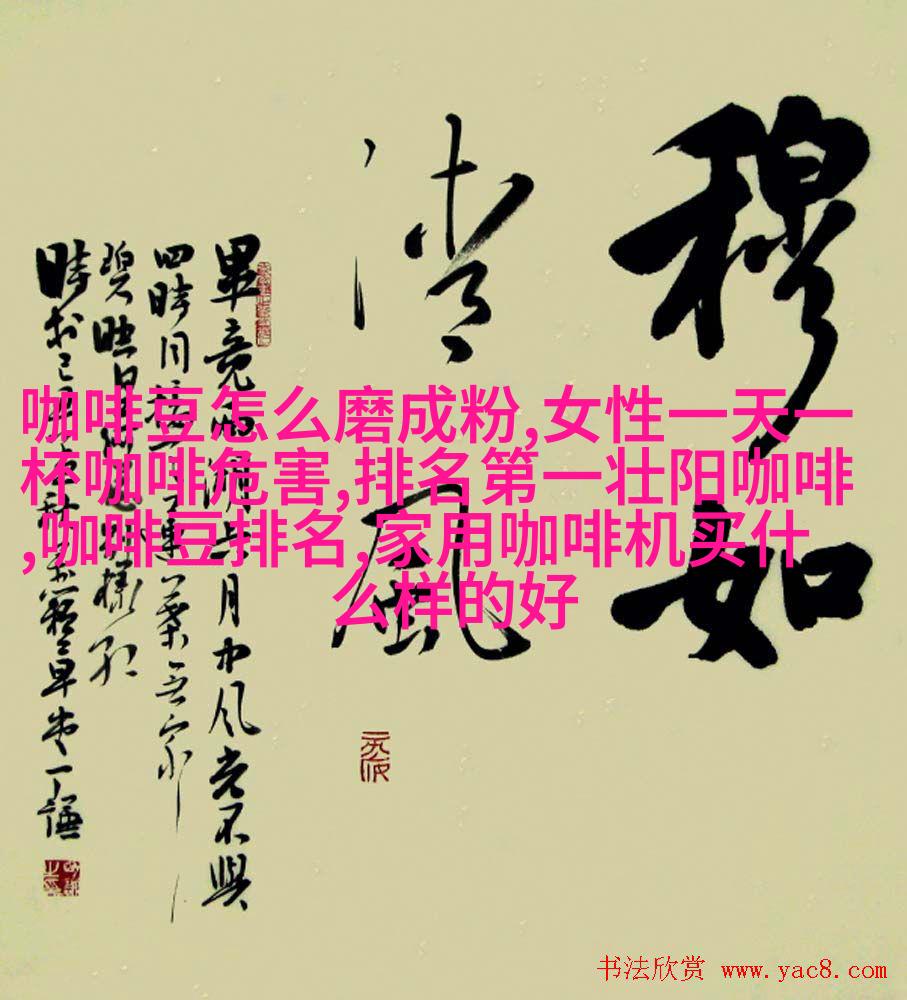 穆如
清風
畢竟西湖六月中风光不與
四時同接天蓮葉无穷
碧映日荷花別樣红
咖啡豆怎么磨成粉,女性一天一
杯咖啡危害,排名第一壮阳咖啡
,咖啡豆排名,家用咖啡机买什
么样的好
书法欣赏 www.yac8.com